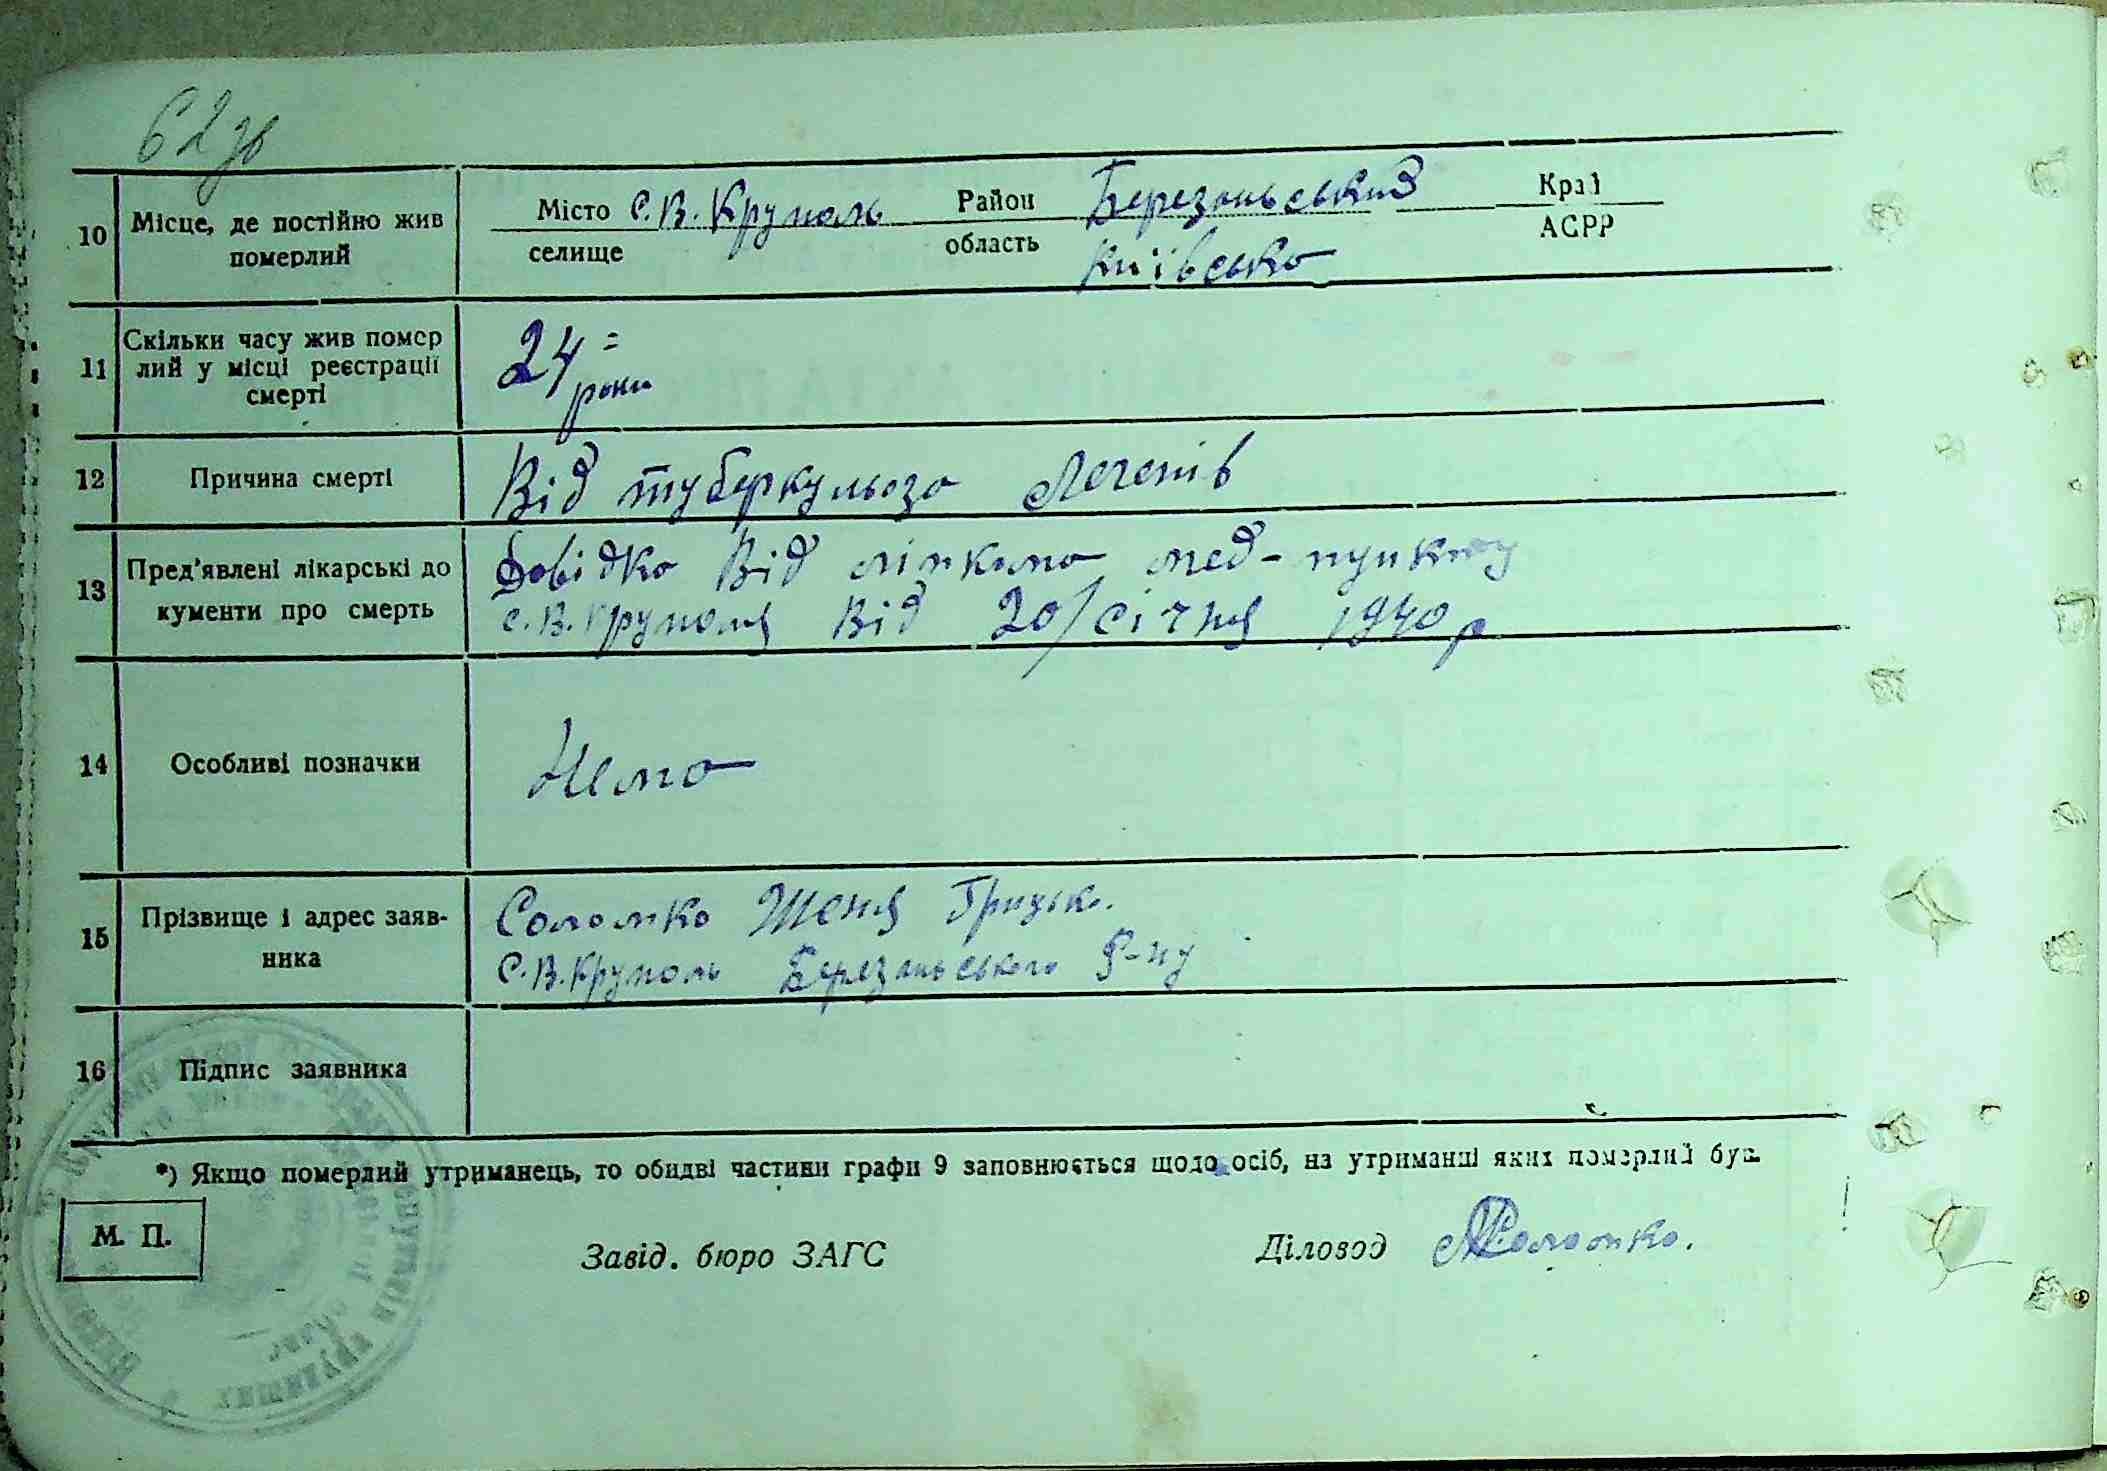 62 зв
10 Місце, де постійно жив померлий
Місто с. В. Круполь Район Березаньський Край
селище область Київська АСРР
11 Скільки часу жив помер
лий у місці реєстрації
смерті
24 = роки
12 Причина смерті Від туберкульоза легенів
13 Пред'явлені лікарські до
кументи про смерть
Довідка Від мед-пункту
с. В. Круполя Від 20/січня 1940 р
14 Особливі позначки Нема
15 Прізвище і адрес заяв-
ника
Соломко Женя Грицьк.
с. В. Круполь Березанського р-ну
16 Підпис заявника
*) Якщо померлий утриманець, то обидві частини графи 9 заповнюється щодо осіб, на утриманні яких померлий був.
М. П.
Завід. бюро ЗАГС Діловод Соломко.